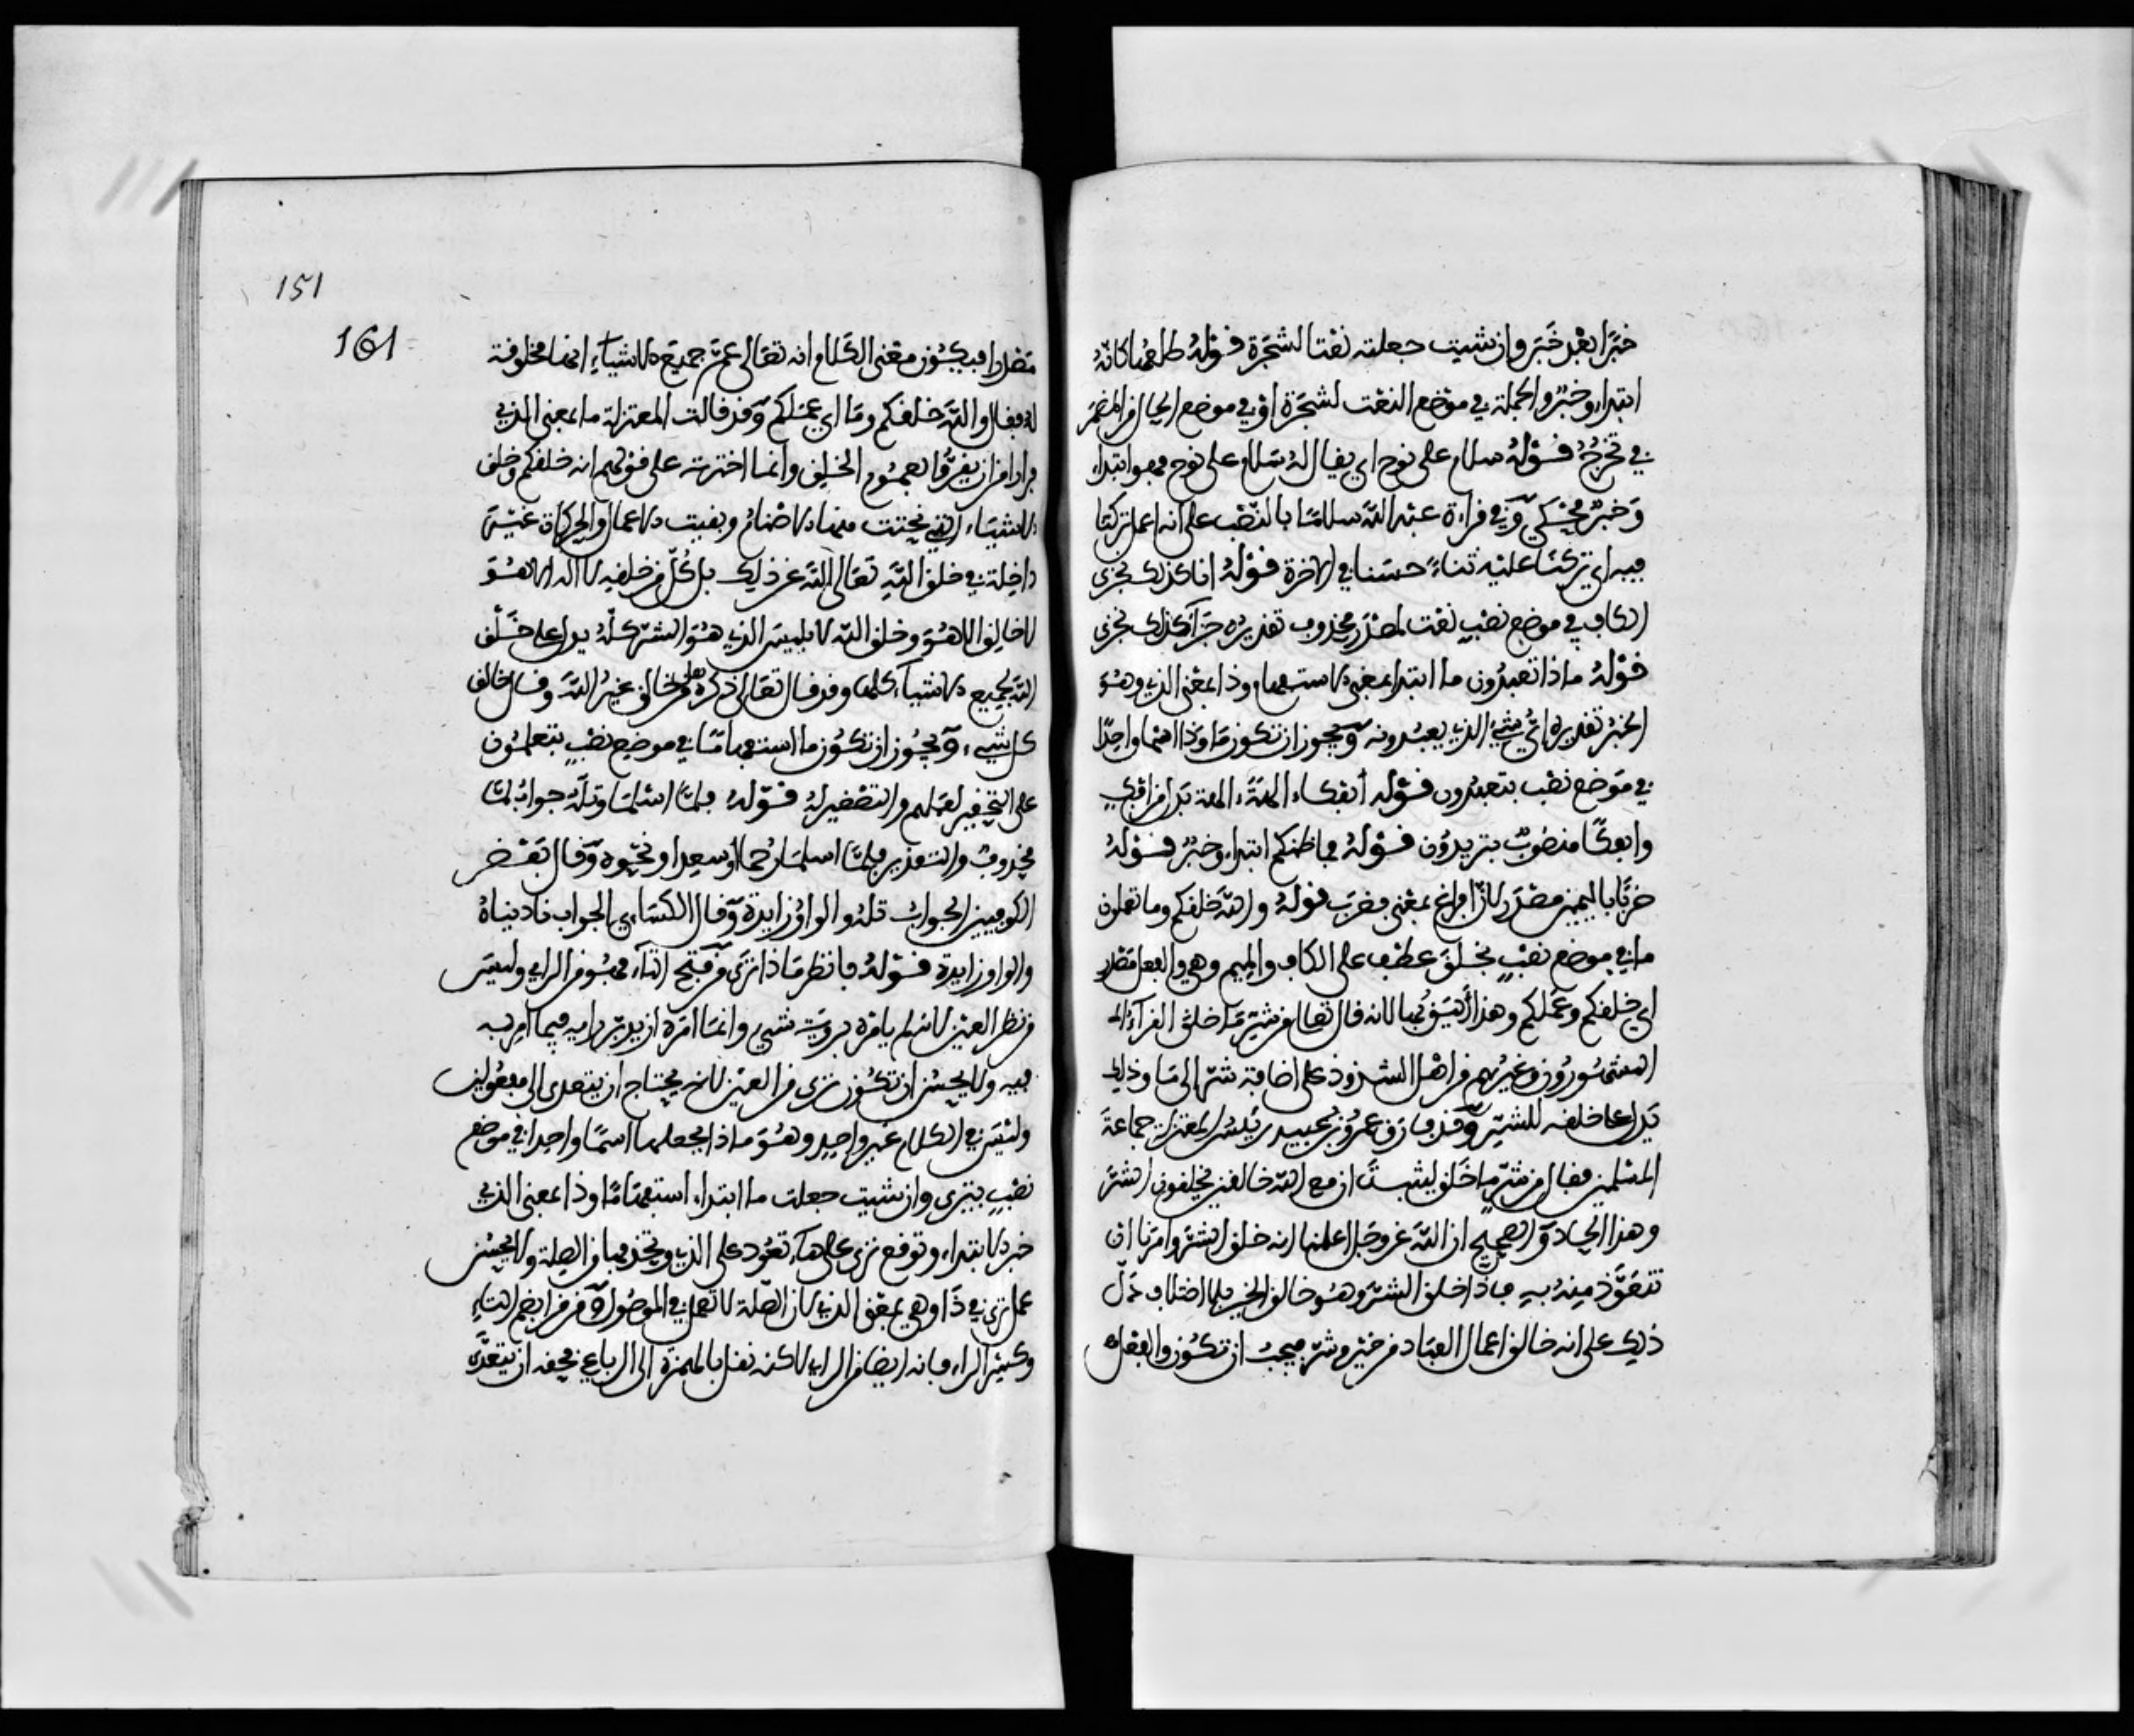 خبرا بعد خبر وان شيت جعلته نعتا لشجرة قوله طلعها كانه
ابتداء وخبر والجملة في موضع النعت لشجرة او في موضع الحال من المضمر
في تخرج قوله سلام على نوح اي يقال له سلام على نوح فهو ابتداء
وخبر محكي وفي قراءة عبد الله سلاما بالنصب على انه اعمل تركنا
فيه اي تركنا عليه ثناء حسنا في الاخرة قوله انا كذلك نجزى
الكاف في موضع نصب نعت لمصدر محذوف تقديره جزاء كذلك نجزى
قوله ماذا تعبدون ما ابتداء بمعنى الاستفهام وذا بمعنى الذي وهو
الخبر تقديره اي شيء الذي يعبدونه ويجوز ان تكون ما وذا اسما واحدا
في موضع نصب بتعبدون قوله أئفكاء الهة الهة بدل من افك
وافكا منصوب بتريدون قوله فما ظنكم ابتداء وخبر قوله
ضربا باليمين مصدر لان فراغ بمعنى فضرب قوله والله خلقكم وما تعملون
ما في موضع نصب بخلق عطف على الكاف والميم وهي والفعل مصدر
اي خلقكم وعملكم وهذا أليق بها لانه قال تعالى من شر ما خلق القرآء
المشهورون وغيرهم من اهل الشذوذ على اضافة شر الى ما وذلك
يدل على خلقه للشر وقد فارق عمرو بن عبيد رئيس المعتزلة جماعة
المسلمين فقال من شر ما خلق ليثبت ان مع الله خالقين يخلقون الشر
وهذا الحاد والصحيح ان الله عز وجل اعلمنا انه خلق الشر وامرنا ان
نتعوذ منه به فاذا خلق الشر وهو خالق الخير بلا اختلاف دل
ذلك على انه خالق اعمال العباد من خير وشر فيجب ان تكون والفعل
151
161
مصدرا فيكون معنى الكلام انه تعالى عم جميع الاشياء انها مخلوقة
له فقال والله خلقكم وما اي عملكم وقد قالت المعتزلة ما بمعنى الذي
فرارا من ان يقروا بعموم الخلق وانما اخبرته على قولهم انه خلقكم وخلق
الاشياء التي نحتت منها الاصنام وبقيت الاعمال والحركات غير
داخلة في خلق الله تعالى الله عن ذلك بل كل من خلقه لا اله الا هو
لا خالق الا هو وخلق الله لابليس الذي هو الشر كله يدل على خلق
الله لجميع الاشياء كلها وقد قال تعالى ذكره هل من خالق غير الله وقال خالق
كل شيء ويجوز ان تكون ما استفهاما في موضع نصب بتعملون
على التحقير لعملهم والتصغير له قوله فلما اسلما وتله جواب لما
محذوف والتقدير فلما اسلما رحما او سعدا ونحوه وقال بعض
الكوفيين الجواب تله والواو زايدة وقال الكساءي الجواب ناديناه
والواو زايدة قوله فانظر ماذا ترى من فتح التاء فهو من الراي وليس
من نظر العين لانه لم يامره برؤية شيء وانما امره ان يدبر رايه فيما امر به
فيه ولا يحسن ان تكون ترى من العين لانه يحتاج ان يتعدى الى مفعولين
وليس في الكلام غير واحد وهو ماذا يجعلها اسما واحدا في موضع
نصب بترى وان شيت جعلت ما ابتداء استفهاما وذا بمعنى الذي
خبر الابتداء وتوقع ترى على هاء تعود على الذي وتحذفها من الصلة ولا يحسن
عمل ترى في ذا وهي بمعنى الذي لان الصلة لا تعمل في الموصول ومن قرا بضم التاء
وكسر الراء فانه ايضا من الراي لاكنه نقل بالهمزة الى الرباعي فحقه ان يتعدى